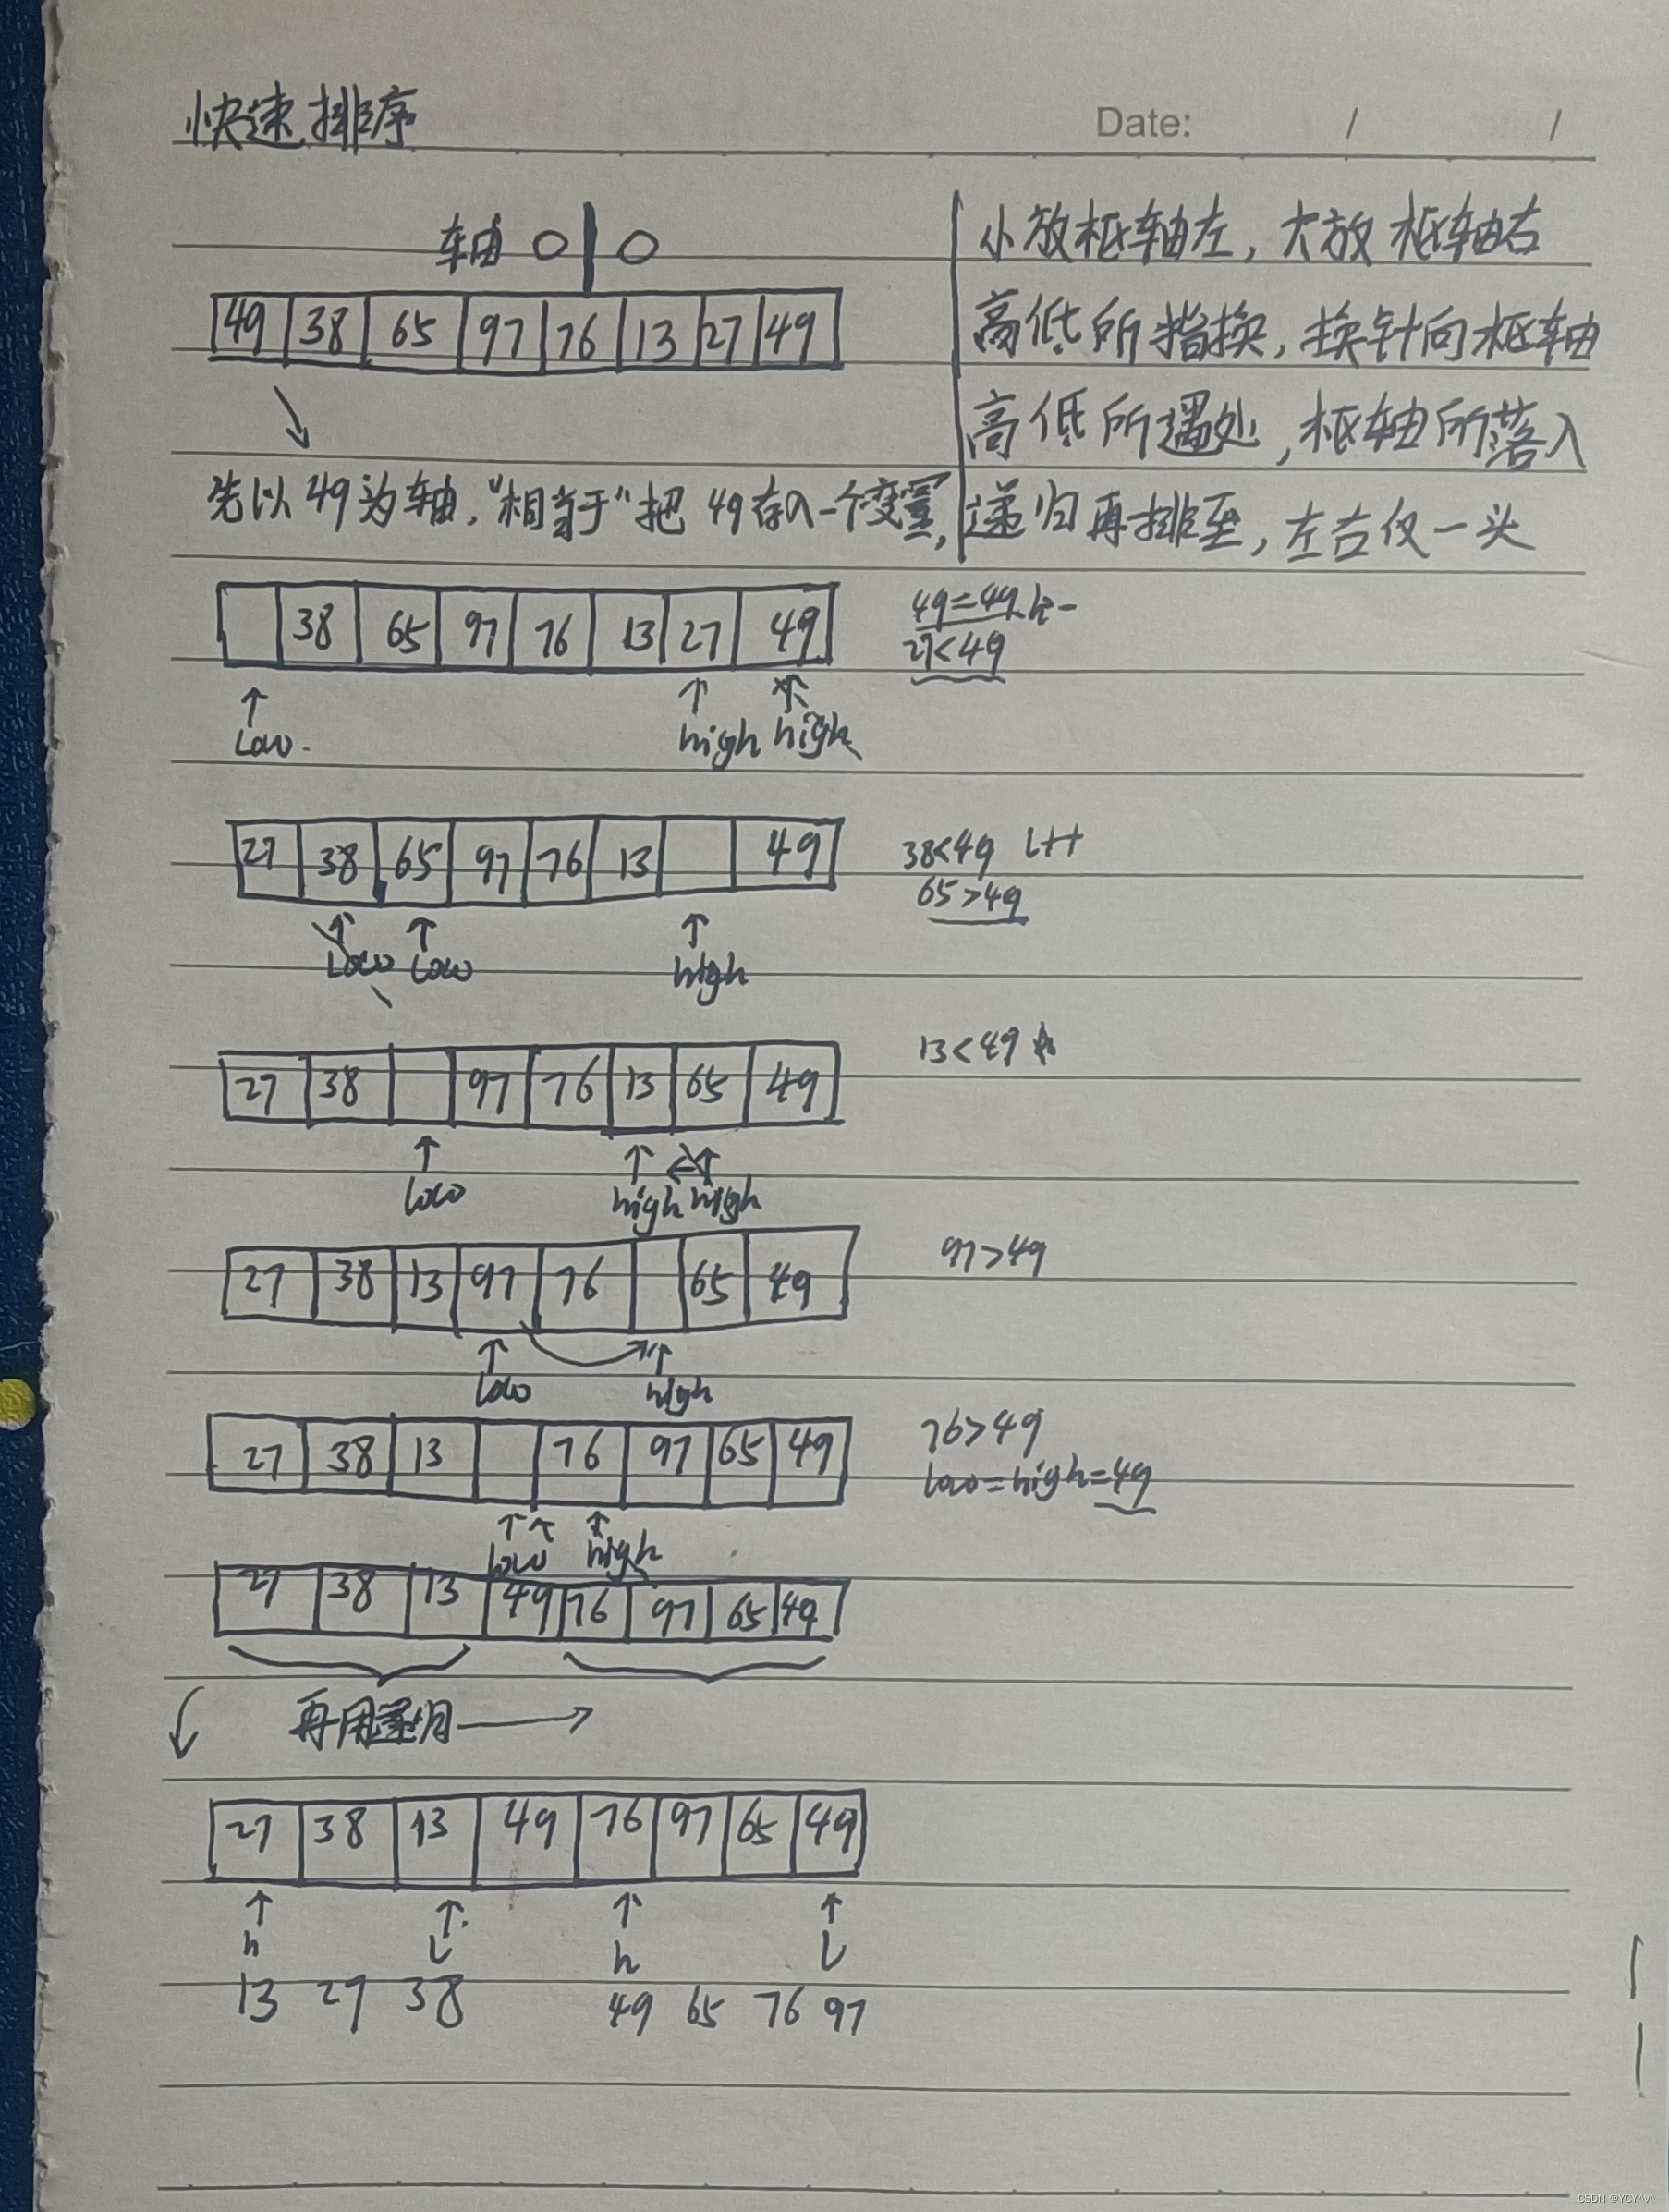 快速排序
Date: / /
车由 O | O
49 38 65 97 76 13 27 49
小放枢轴左，大放枢轴右
高低所指换，换针向枢轴
高低所遇处，枢轴所落入
递归再排至，左右仅一头
先以49为轴，“相等于”把49存入一个变量，
38 65 97 76 13 27 49
49=49 h--
27<49
Low. high high
27 38 65 97 76 13 49
38<49 L++
65>49
Low Low high
27 38 97 76 13 65 49
13<49
low high high
27 38 13 97 76 65 49
97>49
low high
27 38 13 76 97 65 49
76>49
low=high=49
low high
27 38 13 49 76 97 65 49
再用递归
27 38 13 49 76 97 65 49
h L h L
13 27 38 49 65 76 97
CSDN @YCY^v^